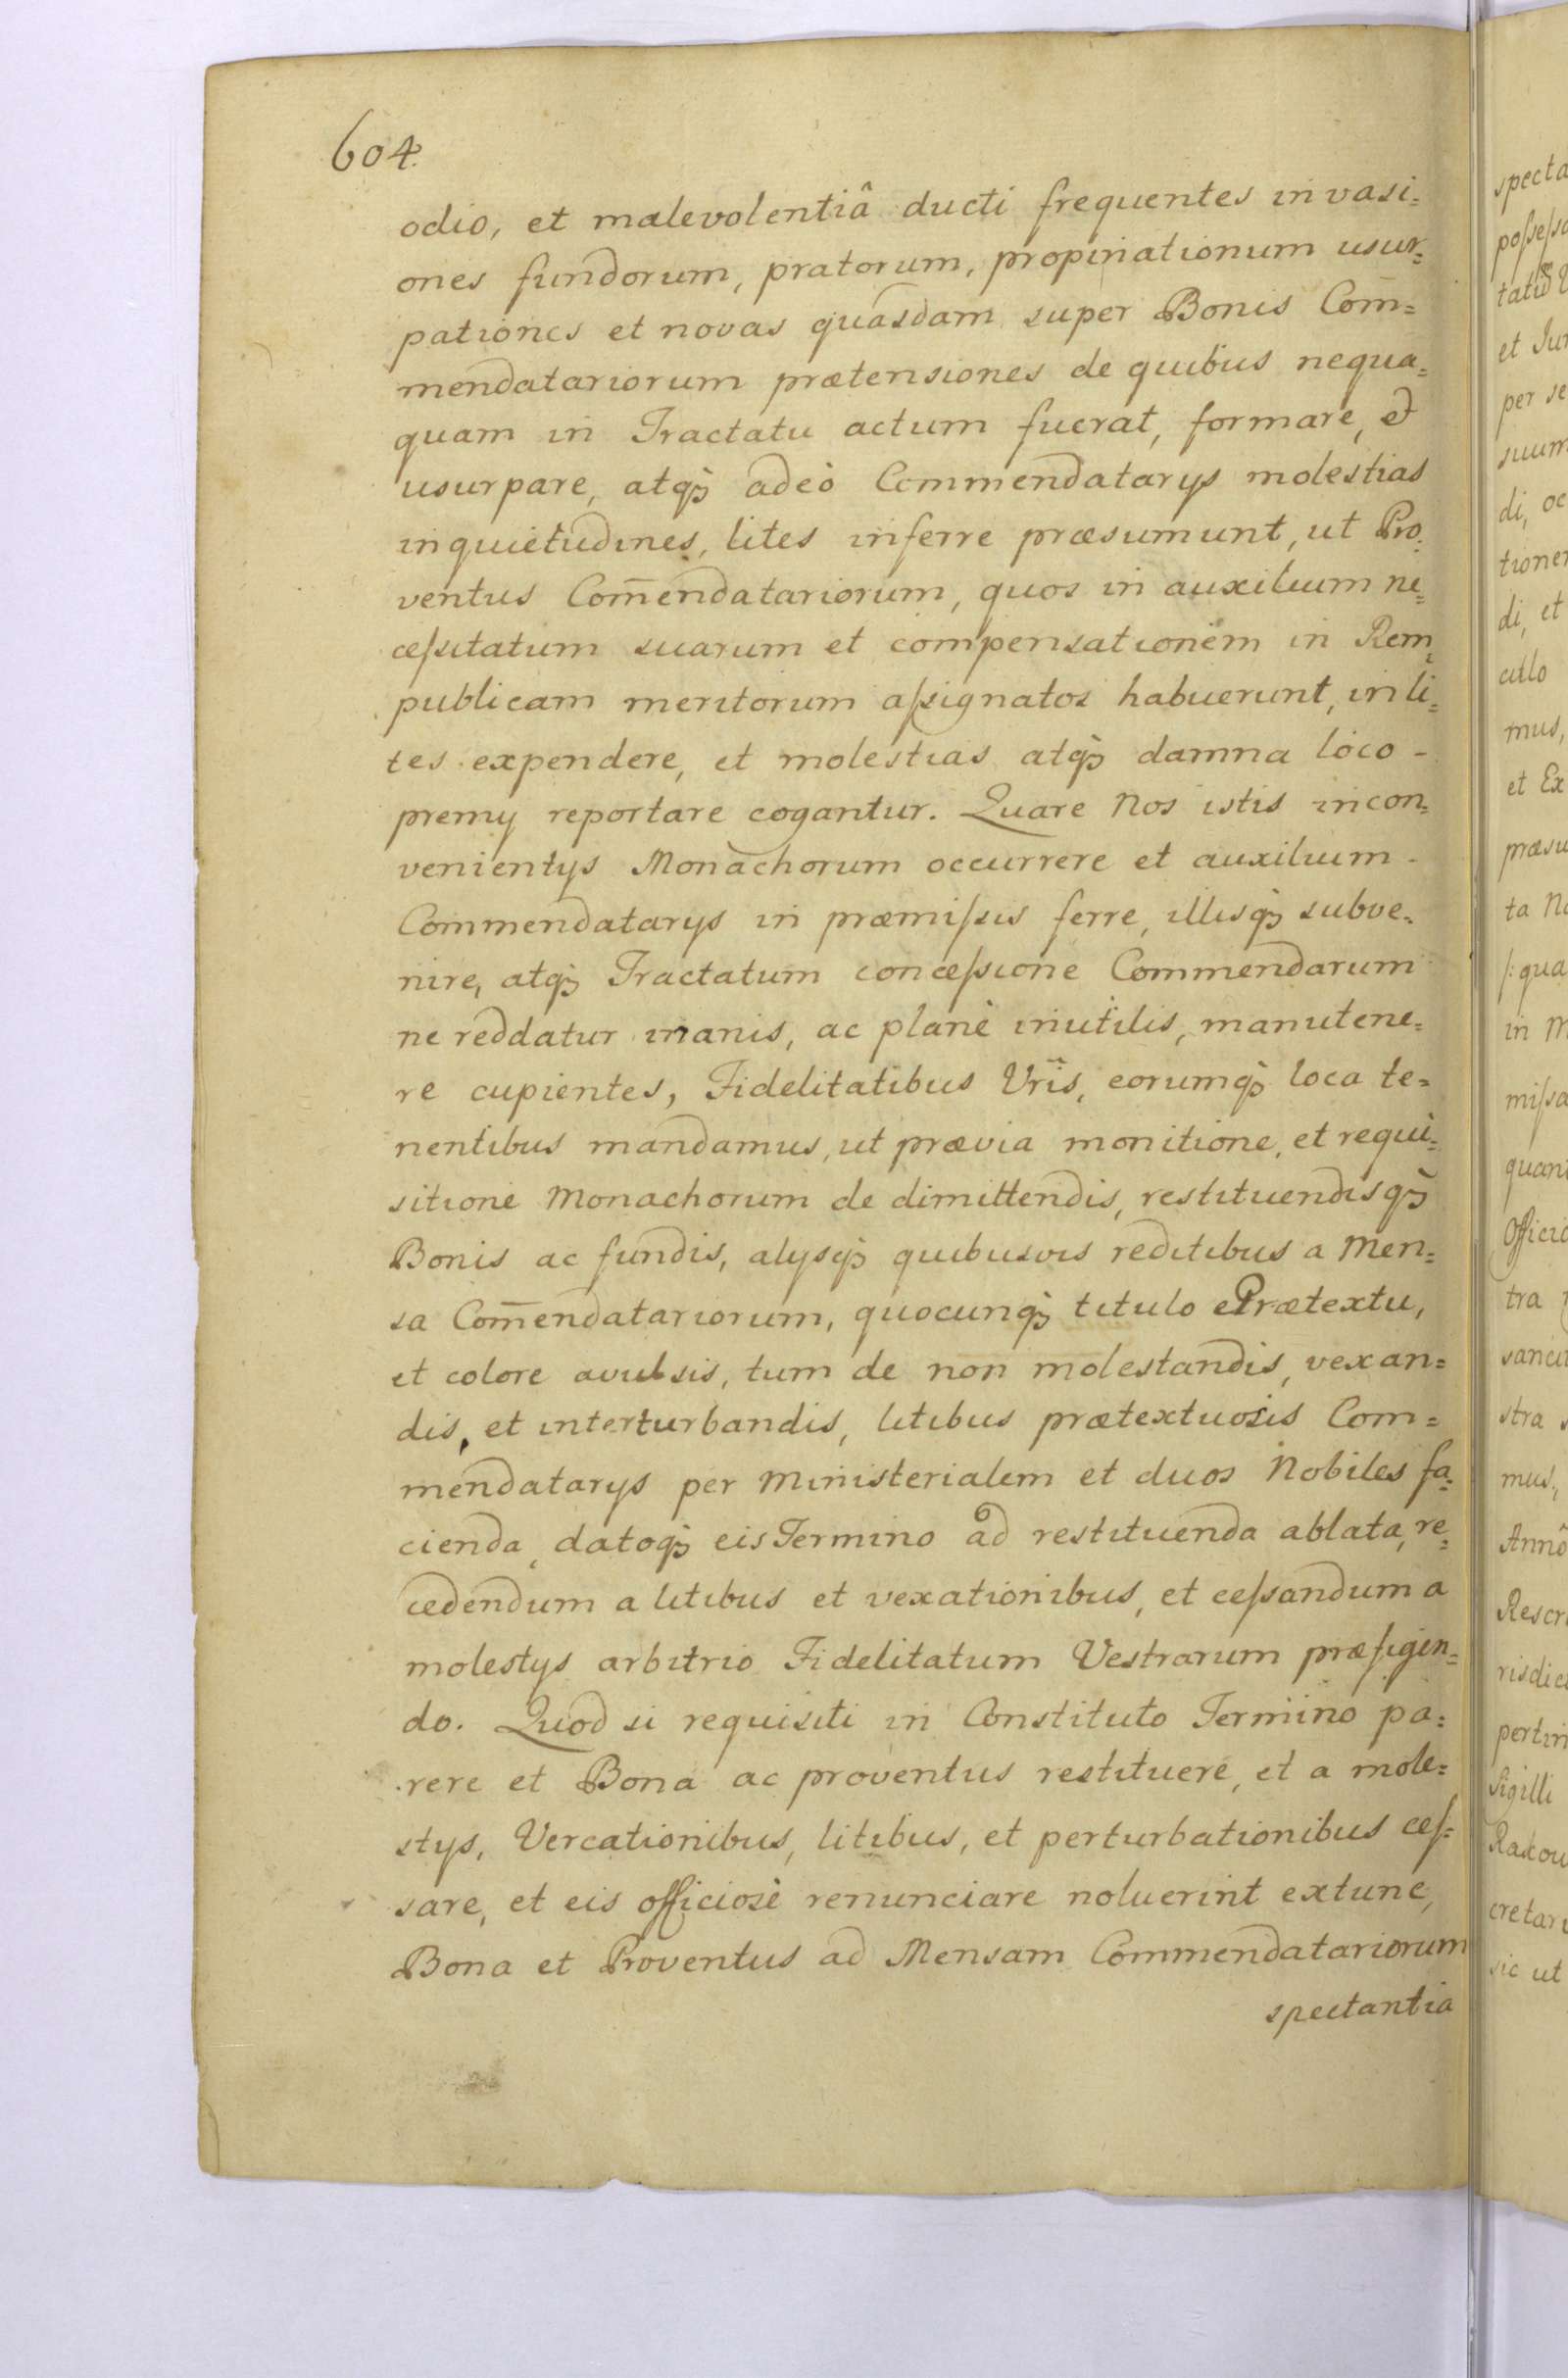 604.
odio, et malevolentiâ ducti frequentes invasi=
ones fundorum, pratorum, propinationum usur=
pationes et novas quasdam super Bonis Com̄=
mendatariorum prætensiones de quibus nequa=
quam in Tractatu actum fuerat, formare, et
usurpare, atq₃ adeò Commendatarys molestias
inquietudines, lites inferre præsumunt, ut Pro=
ventus Com̄endatariorum, quos in auxilium ne=
ceſsitatum suarum et compensationem in Rem=
publicam meritorum aſsignatos habuerunt, in li=
tes expendere, et molestias atq₃ damna loco -
premy reportare cogantur. Quare Nos istis incon=
venientys Monachorum occurrere et auxilium -
Commendatarys in præmiſsis ferre, illisq₃ subve=
nire, atq₃ Tractatum conceſsione Commendarum
ne reddatur inanis, ac planè inutilis, manutene=
re cupientes, Fidelitatibus Vrĩs, eorumq₃ loca te=
nentibus mandamus, ut prævia monitione, et requi=
sitione Monachorum de dimittendis, restituendisq₃
Bonis ac fundis, alysq₃ quibusvis reditibus a Men=
sa Com̄endatariorum, quocunq₃ titulo ePrætextu,
et colore avulsis, tum de non molestandis, vexan=
dis, et interturbandis, litibus prætextuosis Com=
mendatarys per Ministerialem et duos Nobiles fa=
cienda, datoq₃ eis Termino ad restituenda ablata, re=
cedendum a litibus et vexationibus, et ceſsandum a
molestys arbitrio Fidelitatum Vestrarum præfigen=
do. Quod si requisiti in Constituto Termino pa=
rere et Bona ac proventus restituere, et a mole=
stys, Vercationibus, litibus, et perturbationibus ceſ=
sare, et eis officiosè renunciare noluerint extunc,
Bona et Proventus ad Mensam Commendatariorum
spectantia